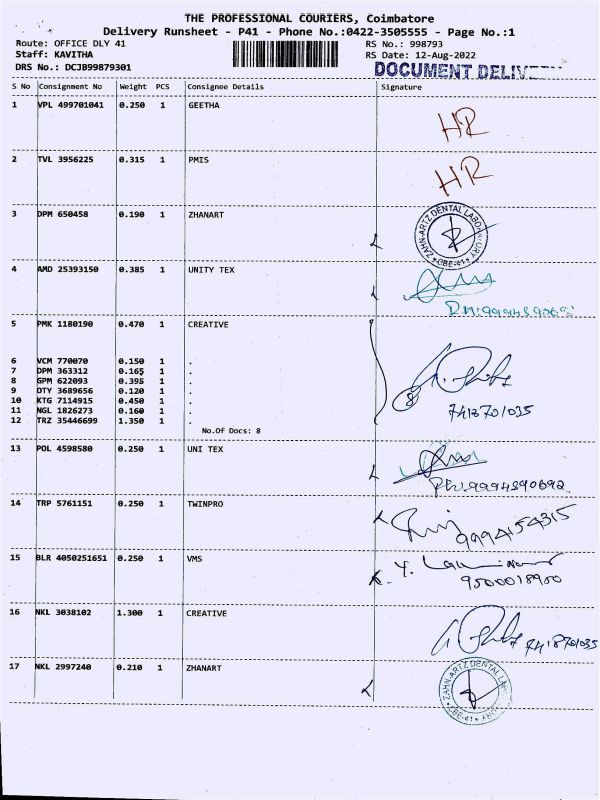 THE PROFESSIONAL COURIERS, Coimbatore
Delivery Runsheet - P41 - Phone No.:0422-3505555 - Page No.:1
Route: OFFICE DLY 41 RS No.: 998793
Staff: KAVITHA RS Date: 12-Aug-2022
DRS No.: DCJB99879301 DOCUMENT
S No Consignment No Weight PCS Consignee Details Signature
1 VPL 499701041 0.250 1 GEETHA HR
2 TVL 3956225 0.315 1 PMIS HR
3 DPM 650458 0.190 1 ZHANART
ZAHN-ARTZ DENTAL LABORATORY * CBE-41 *
4 AMD 25393150 0.385 1 UNITY TEX
5 PMK 1180190 0.470 1 CREATIVE
6 VCM 770070 0.150 1 .
7 DPM 363312 0.165 1 .
8 GPM 622093 0.395 1 .
9 OTY 3689656 0.120 1 .
10 KTG 7114915 0.450 1 .
11 NGL 1826273 0.160 1 .
12 TRZ 35446699 1.350 1 .
8
7418701035
No.Of Docs: 8
13 POL 4598580 0.250 1 UNI TEX
14 TRP 5761151 0.250 1 TWINPRO
9994154315
15 BLR 4050251651 0.250 1 VMS
9500018900
16 NKL 3038102 1.300 1 CREATIVE
7418701035
17 NKL 2997240 0.210 1 ZHANART
ZAHN-ARTZ DENTAL
CBE-41